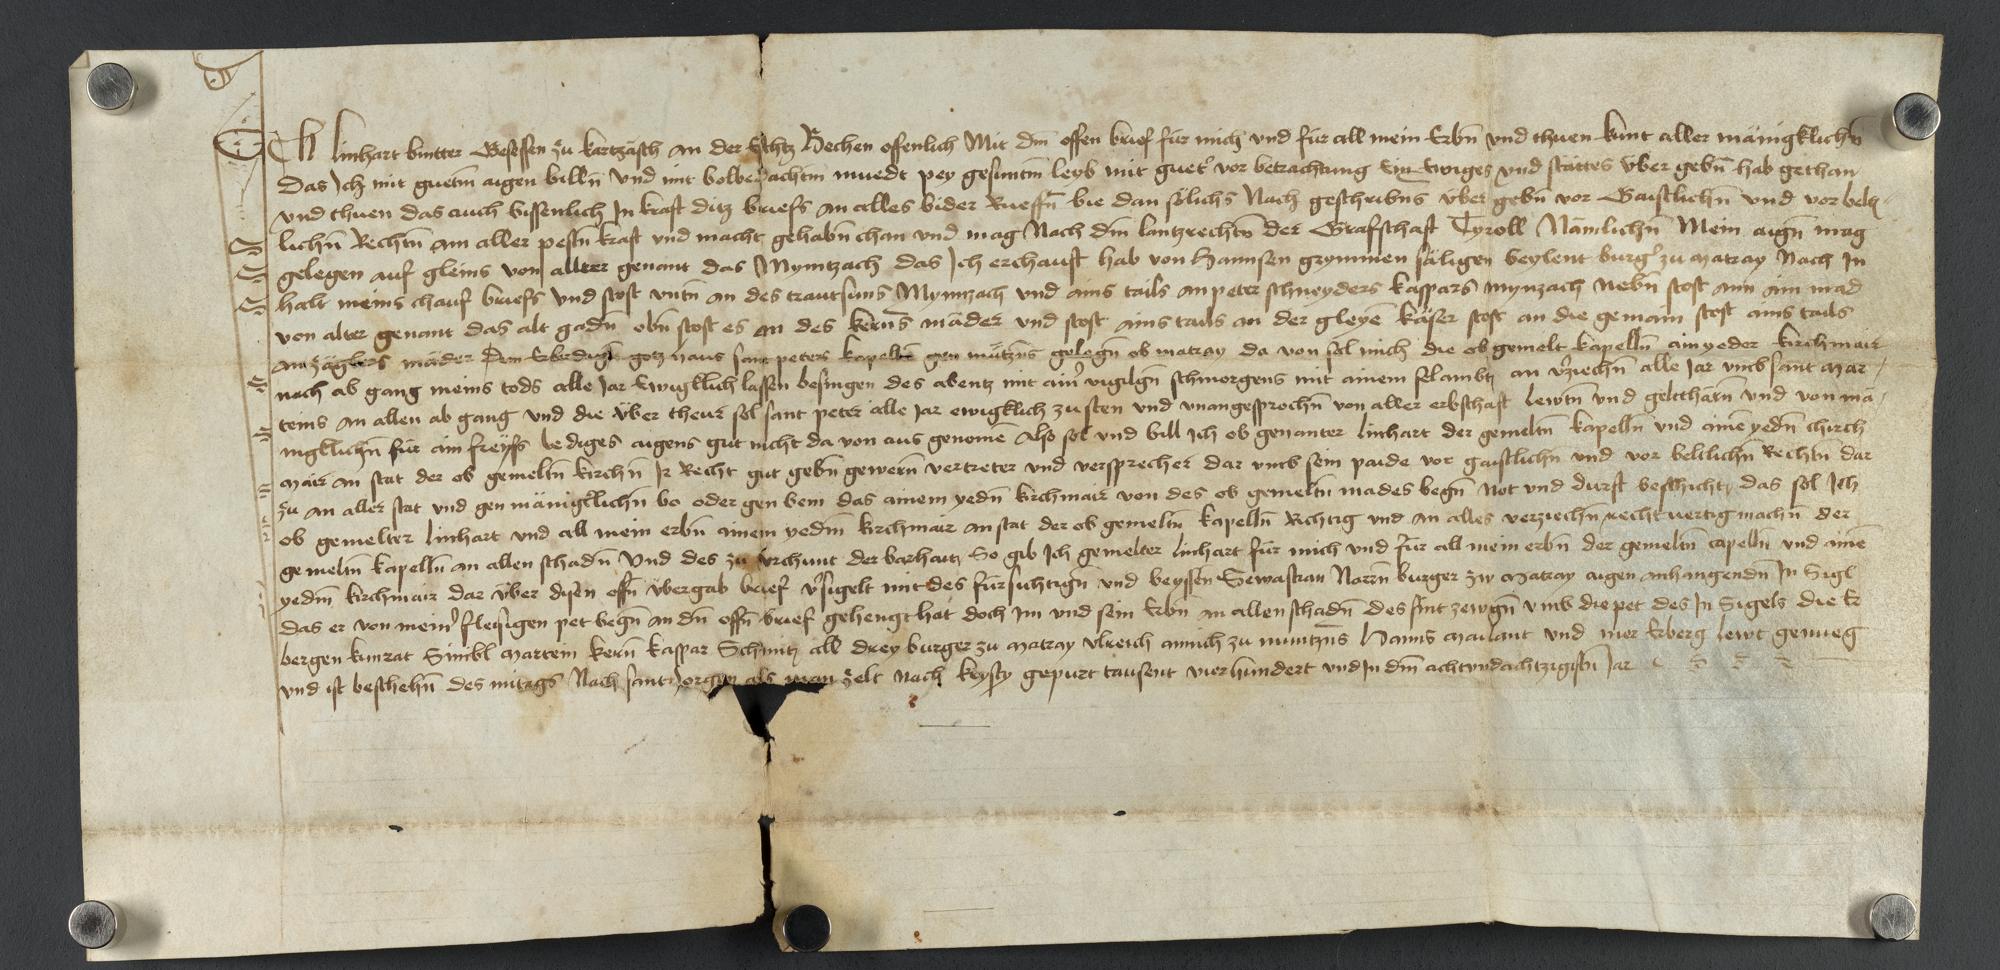 Ich linhart bintter Gesessen zu kartzäsch an der Echtz Vechen offenlich Mit dm̄ offen brief für mich und für all mein Erbn̄ und thuen kunt aller mänigklichn̄
Das Ich mit guetm̄ aigen billn̄ Und mit bolbedachtm̄ muedt pey gesuntm̄ leyb mit guetˀ vor betrachtung Ein Ewiges und stättes Vber gebn̄ hab gethan
Und thuen das auch bissenlich In kraft ditz briefs an alles bider Rueffn̄ bie dan sölichs Nach geschribn̄s über gebn̄ vor Gaistlichn̄ und vor belt
lichn̄ Rechtn̄ am aller pestn̄ kraft und macht gehabn̄ chan und mag Nach dm̄ lantzrechtn̄ der Grafschaft Tyroll Nämlichn̄ Mein aign̄ mag
gelegen auf gleins von allter genant das Mynntzach das Ich erchauft hab von Hannsen grymmen säligen beylent burgˀ zu matray Nach In
halt meins chauf briefs und stost untn̄ an des trautsuns Mynntzach und ains tails an peter schneyders kaspars mynzach nebn̄ stost ann ain mad
von alter genant das alt gadn̄ obn̄ stost es an des kerns mäder und stost ains tails an der gleye käser stost an die gemain stost ains tails
an zäglers mäder Dem Erbirdign̄ gotz haus sant peters kapelln̄ gen mütznˢ gelegn̄ ob matray da von sol mich die ob gemelt kapelln̄ ain yeder kirchmair
nach ab gang meins tods alle Jar Ewigklich lassen besingen des abentz mit ainˀ vigilgn̄ schmorgens mit ainem selambt an vˀziechn̄ alle Jar umb sant mar
teins an allen ab gang und die über theur sol sant peter alle Jar ewigklich zu sten und unangesprochn̄ von aller erbschaft lewtn̄ und geltthärn̄ und von mä
nigklichn̄ für ain freyss lediges aigens gut nicht da von aus genomē Also sol und bill Ich ob genanter linhart der gemeltn̄ kapelln̄ und ainē yedn̄ chirch
mair an stat der ob gemeltn̄ kirchn̄ Ir Recht gut gebn̄ gewern̄ vertreter und versprecher dar umb sein paide vor gaistlichn̄ und vor beltlichn̄ Rechtn̄ dar
zu an aller stat und gen mänigklichn̄ bo oder gen bem das ainem yedn̄ kirchmair von des ob gemeltn̄ mades begn̄ Not und durft beschicht das sol Ich
ob gemelter linhart und all mein erbn̄ ainem yedm̄ kirchmair an stat der ob gemeltn̄ kapelln̄ Richtig und an alles verziechn̄ recht vertig machn̄ der
gemeltn̄ kapelln̄ an allen schadn̄ Und des zu Vrchunt der barhait So gib Ich gemelter linhart für mich und für all mein erbn̄ der gemeltn̄ capelln̄ und ainē
yedm̄ kirchmair dar über disen offn̄ übergab brief vˀsigelt mit des fürsichtign̄ und beyssen Sewastian Narrn̄ burger zw matray aigen anhangendn̄ In Sigl
das er von meinˀ fleysigen pet begn̄ an dn̄ offn̄ brief gehengt hat doch im und sein Erbn̄ an allen schadn̄ des sint zewgn̄ umb die pet des In Sigels die Er
bergen kunrat Simbl martein kern̄ kaspar Schmitz all drey burger zu matray ulreich zu mutznˢ Hanns mailant und mer Erberg lewt genueg
und ist beschehn̄ des mitags Nach sant Jorgen als man zelt nach kristy gepurt tausent vierhundert und In dm̄ achtundachtzigistn̄ Jar